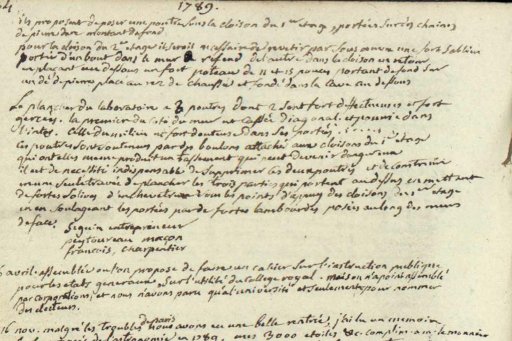 1789.
ils proposent de poser une poutre sous la cloison du 1er étage, portée sur des chaines
de pierre dure montant de fond
pour la cloison du 2e étage il seroit necessaire de par sous œuvre une forte sabliere
portée d'un bout dans le mur de refend de l'autre dans la cloison en retour
en plaçant au dessous un fort poteau de 12 et 15 pouces portant de fond sur
un dé de pierre placé au rez de chaussée et fondé dans la cave au dessous
Le plancher du laboratoire a 3 poutres dont 2 sont fort défectueuses et fort
gercées. la premiere du côté du mur est cassée diagonal. et pourrie dans
celle du milieu est fort douteuse dans ses portées
ces poutres sont soutenues par des boulons attachés aux cloisons du 1er étage
qui ont elles meme produit un tassement qui peut devenir dangereux
il est de necessité indispensable de supprimer les deux poutres et reconstruire
une seule travée de plancher les trois parties qui portent au dessus en mettant
de fortes solives d' sous les points d'appuy des cloisons du 1er étage
et en soulageant les portées par de fortes lambourdes posées au long des murs
de face.
Seguin entrepreneur
peytoureau maçon
françois, charpentier
avril. assemblée ou l'on propose de faire un cahier sur l'instruction publique
pour les etats generaux sur l'utilité du college royal. mais on n'a point assemblé
par corporations, et nous n'avons paru qu'a l'université et seulement pour nommer
des electeurs.
16 nov. malgré les troubles de paris nous avons eu une belle rentrée, j'ai lu un memoire
de l'astronomie en 1789. mes 3000 etoiles &c. a m. le monnier